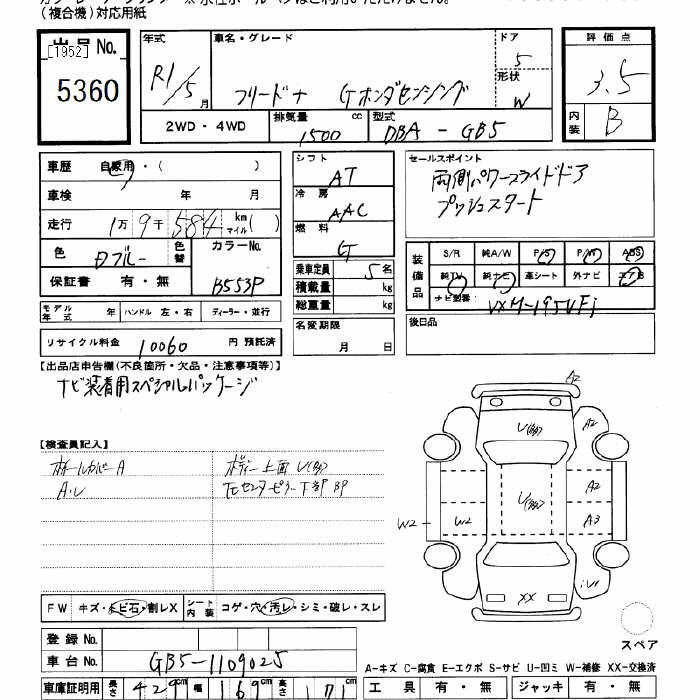 (複合機)対応用紙
出品 No. 年式 車名・グレード ドア 評価点
[1952] R1/5月 フリード+ Gホンダセンシング 5 3.5
5360 形状 W
2WD・4WD 排気量 1500 cc 型式 DBA-GB5 内装 B
車歴 自家用・( ) シフト AT セールスポイント
車検 年 月 冷房 AAC 両側パワースライドドア
走行 1万9千584 km マイル( ) プッシュスタート
燃料 G
色 色替 カラーNo. B553P
保証書 有・無
乗車定員 5名
積載量 kg
総重量 kg
装備品 S/R 純A/W P/S P/W ABS
純TV 純ナビ 革シート 外ナビ エアB
ナビ型番 VXM-195VFi
モデル年式 年 ハンドル 左・右 ディーラー・並行
名変期限 月 日
後日品
リサイクル料金 10060 円 預託済
【出品店申告欄(不良箇所・欠品・注意事項等)】
ナビ装着用スペシャルパッケージ
【検査員記入】
ホイールカバーA ボディー上面
A.U 下部
A2
A2
A2
A3
W2 W2
XX
FW キズ・トビ石・割レX シート内装 コゲ・穴・汚レ・シミ・破レ・スレ
スペア
登録 No.
車台 No. GB5-1109025
A-キズ C-腐食 E-エクボ S-サビ U-凹ミ W-補修 XX-交換済
車庫証明用 長さ 429 cm 幅 169 cm 高さ 171 工具 有・無 ジャッキ 有・無